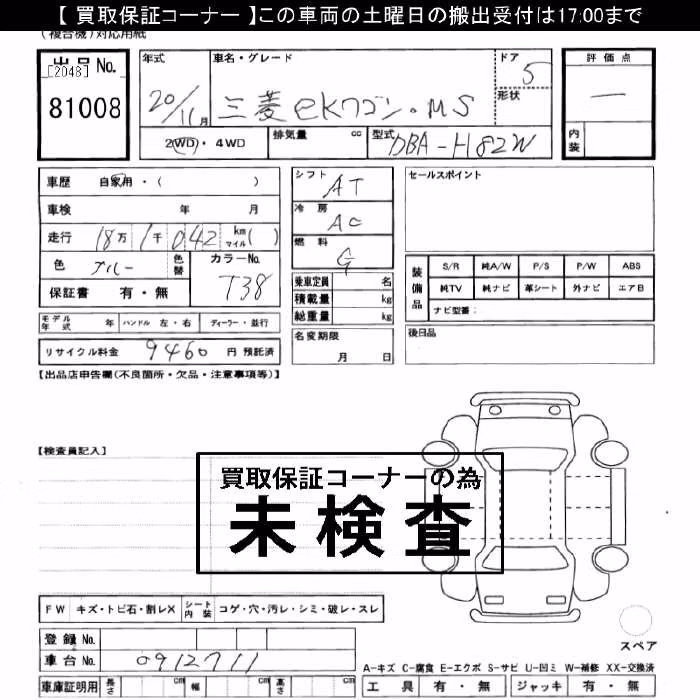 【 買取保証コーナー 】この車両の土曜日の搬出受付は17:00まで
(複合機)対応用紙
出品 No.
[2048]
81008
年式
20/11月
車名・グレード
三菱eKワゴン・MS
ドア
5
形状
評価点
—
内装
2WD・4WD
排気量 cc
型式
DBA-H82W
車歴 自家用・( )
車検 年 月
走行 18万1千042 km マイル( )
色 ブルー
色替
カラーNo.
T38
保証書 有・無
モデル年式 年 ハンドル 左・右 ディーラー・並行
リサイクル料金 9460 円 預託済
シフト
AT
冷房
AC
燃料
G
乗車定員 名
積載量 kg
総重量 kg
名変期限
月 日
セールスポイント
装備品
S/R 純A/W P/S P/W ABS
純TV 純ナビ 革シート 外ナビ エアB
ナビ型番:
後日品
【出品店申告欄(不良箇所・欠品・注意事項等)】
【検査員記入】
買取保証コーナーの為
未検査
FW キズ・トビ石・割レX シート内装 コゲ・穴・汚レ・シミ・破レ・スレ
登録 No.
車台 No. 0912711
車庫証明用 長さ cm 幅 cm 高さ cm
スペア
A-キズ C-腐食 E-エクボ S-サビ U-凹ミ W-補修 XX-交換済
工具 有・無 ジャッキ 有・無